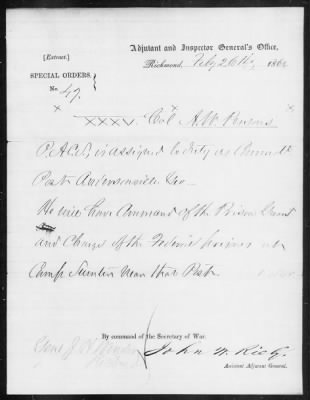 Adjutant and Inspector General's Office,
[Extract.]
Richmond, Feby 26th, 186
SPECIAL ORDERS,
No. 47.
XXXV. Col A. W. Persons
P.A.C.S., is assigned to duty as Comm'd'g
Post Andersonville Geo
He will have Command of the Prison Guard
and Charge of the Federal prisoners at
Camp Sumter near that Post.
By command of the Secretary of War.
Genl J. H. Winder
John W. Riely.
Assistant Adjutant General.